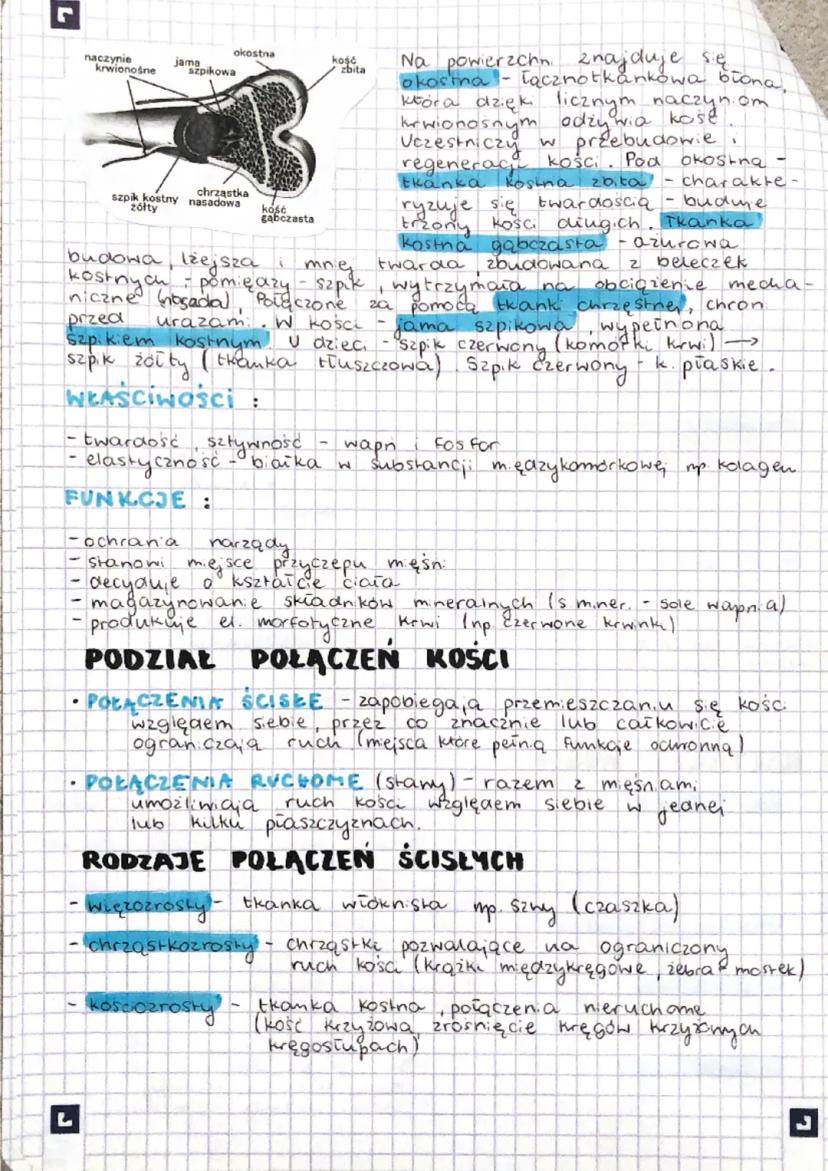 okostna
naczynie
krwionośne
jama
szpikowa
kość
zbita
szpik kostny
żółty
chrząstka
nasadowa
kość
gąbczasta
Na powierzchni znajduje się
okostna - łącznotkankowa błona,
która dzięki licznym naczyniom
krwionośnym odżywia kość.
Uczestniczy w przebudowie i
regeneracji kości. Pod okostną -
tkanka kostna zbita - charakte-
ryzuje się twardością - buduje
trzony kości długich. Tkanka
kostna gąbczasta - ażurowa
budowa, lżejsza i mniej twarda, zbudowana z beleczek
kostnych i pomiędzy - szpik, wytrzymała na obciążenie mecha-
niczne (nasada). Połączone za pomocą tkanki chrzęstnej, chroni
przed urazami. W kości - jama szpikowa, wypełniona
szpikiem kostnym. U dzieci - szpik czerwony (komórki krwi) →
szpik żółty (tkanka tłuszczowa). Szpik czerwony - k. płaskie.
WŁAŚCIWOŚCI :
- twardość, sztywność - wapń i fosfor
- elastyczność - białka w substancji międzykomórkowej np. kolagen
FUNKCJE :
- ochrania narządy
- stanowi miejsce przyczepu mięśni
- decyduje o kształcie ciała
- magazynowanie składników mineralnych (s. miner. - sole wapnia)
- produkuje el. morfotyczne krwi (np. czerwone krwinki)
PODZIAŁ POŁĄCZEŃ KOŚCI
• POŁĄCZENIA ŚCISŁE - zapobiegają przemieszczaniu się kości
względem siebie, przez co znacznie lub całkowicie
ograniczają ruch (miejsca które pełnią funkcje ochronną)
• POŁĄCZENIA RUCHOME (stawy) - razem z mięśniami
umożliwiają ruch kości względem siebie w jednej
lub kilku płaszczyznach.
RODZAJE POŁĄCZEŃ ŚCISŁYCH
- więzozrosty - tkanka włóknista np. szwy (czaszka)
- chrząstkozrosty - chrząstki pozwalające na ograniczony
ruch kości (krążki międzykręgowe, żebra + mostek)
- kościozrosty - tkanka kostna, połączenia nieruchome
(kość krzyżowa, zrośnięcie kręgów krzyżowych
kręgosłupach)